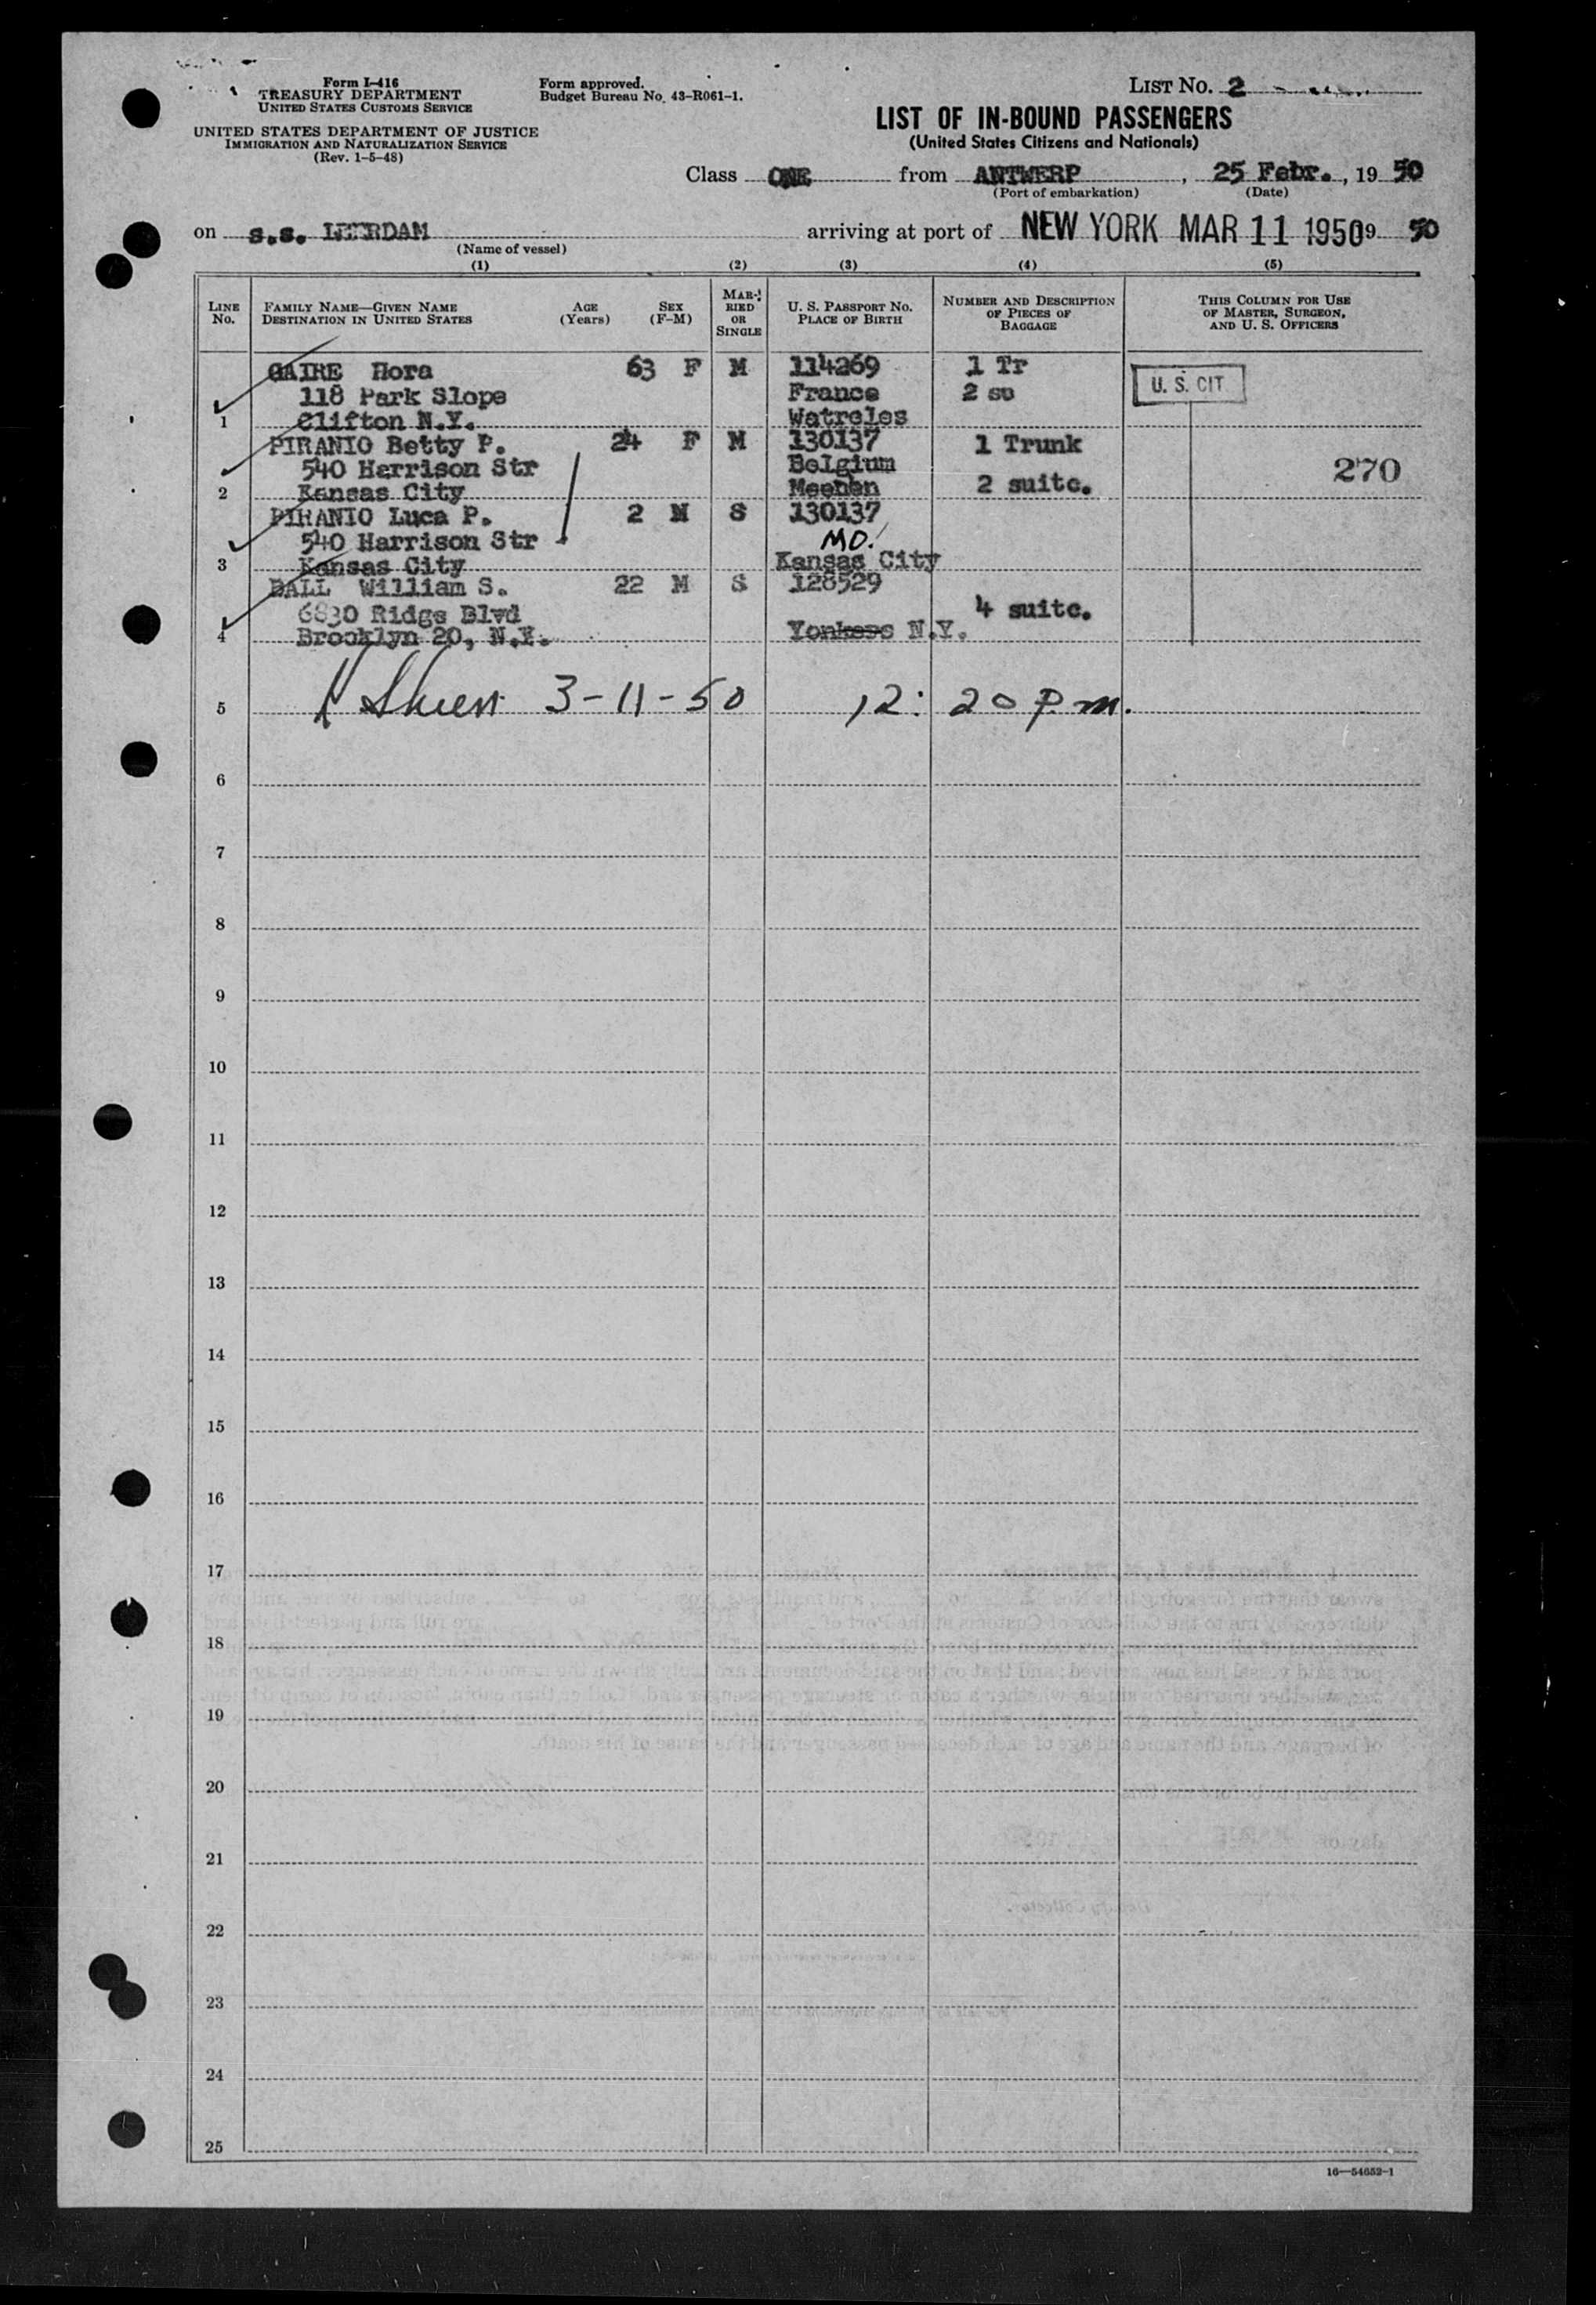 Form I-416
TREASURY DEPARTMENT
UNITED STATES CUSTOMS SERVICE
UNITED STATES DEPARTMENT OF JUSTICE
IMMIGRATION AND NATURALIZATION SERVICE
(Rev. 1-5-48)
Form approved.
Budget Bureau No. 43-R061-1.
LIST No. 2
LIST OF IN-BOUND PASSENGERS
(United States Citizens and Nationals)
Class ONE from ANTWERP, 25 Febr., 19 50
(Port of embarkation) (Date)
on s.s. LEERDAM arriving at port of NEW YORK MAR 11 1950 9 50
(Name of vessel)
(1) (2) (3) (4) (5)
LINE No. FAMILY NAME—GIVEN NAME DESTINATION IN UNITED STATES AGE (Years) SEX (F-M) MARRIED OR SINGLE U. S. PASSPORT No. PLACE OF BIRTH NUMBER AND DESCRIPTION OF PIECES OF BAGGAGE THIS COLUMN FOR USE OF MASTER, SURGEON, AND U. S. OFFICERS
GAIRE 63 F M 114269 1 Tr
118 Park Slope France 2 su U. S. CIT
1 Clifton N.Y. Watreles
PIRANIO Betty P. 24 F M 130137 1 Trunk
540 Harrison Str Belgium 270
2 Kansas City Meenen 2 suitc.
PIRANIO Luca P. 2 M S 130137
540 Harrison Str MO.
3 Kansas City Kansas City
BALL William S. 22 M S 128529
6830 Ridge Blvd 4 suitc.
4 Brooklyn 20, N.Y. Yonkers N.Y.
5 3-11-50 12:20 p m.
6
7
8
9
10
11
12
13
14
15
16
17
18
19
20
21
22
23
24
25
16—54652-1